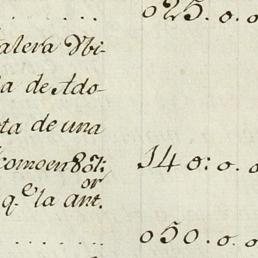 . . . . . . o25. o. o
alera Ni-
la de Ado-
ta de una
comoen 8bre: 140: o. o
q.e la ant.or
. . . . . . o50. o. o